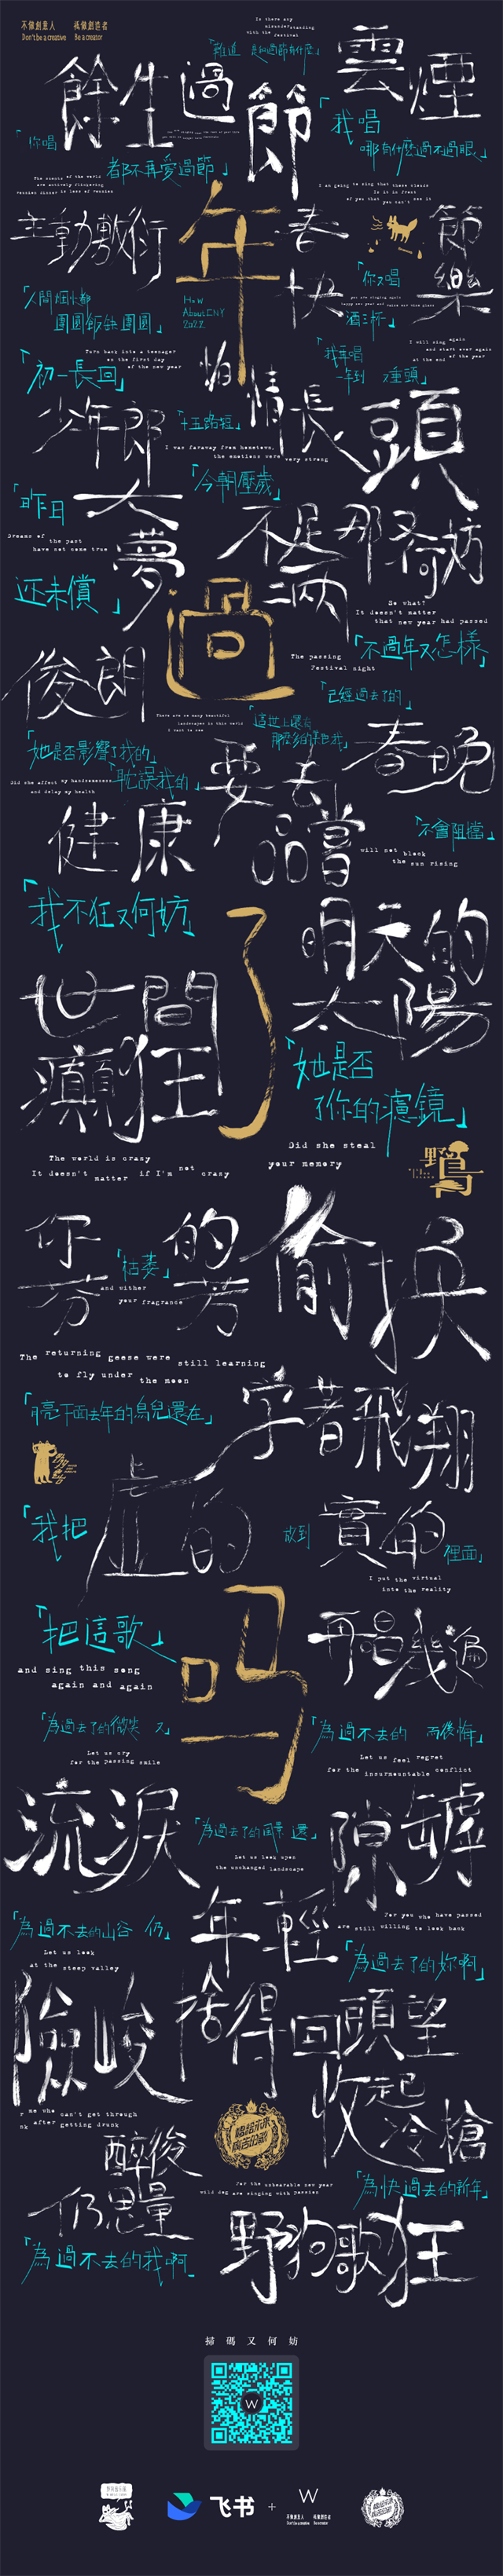 不做創意人
Don't be a creative
Be a creator
Is there any
misunderstanding
with the festival
餘生過節
雲煙
「你唱
都不再愛過節」
「我唱
哪有什麼過不過眼」
The events of the world
are actively flickering
I am going to sing that these clouds
主動敷衍
年
春
快
節
樂
「人間
團圓飯缺團圓」
How
About CNY
2022
「你又唱
酒三杯」
「我再唱
一年到
I will sing again
and start over again
at the end of the year
Turn back into a teenager
on the first day
of the new year
「初一長回」
少年郎
情長
頭
「十五路短」
I was faraway from hometown,
the emotions were very strong
「今朝壓歲」
「昨日
大夢
Dreams of the past
have not come true
还未償」
不足
兩
那又何妨
So what?
It doesn't matter
that new year had passed
過
The passing
Festival night
「不過年又怎樣」
俊朗
「已經過去了的」
春晚
There are so many beautiful
landscapes in this world
I want to see
「這世上還有
「她是否影響了我的」
「耽誤我的」
Did she affect my handsomeness
and delay my health
要去
品嘗
健康
「不會阻擋」
will not block
the sun rising
「我不狂又何妨」
明天的
太陽
了
世間
癲狂
「她是否
了你的濾鏡」
The world is crazy
It doesn't matter if I'm not crazy
Did she steal
your memory
野鳥
你
芳
「枯萎」
的
芳
and wither
your fragrance
偷換
The returning geese were still learning
to fly under the moon
「月亮下面去年的鳥兒還在」
學著飛翔
「我把
虛的
放到
實的
裡面」
I put the virtual
into the reality
「把這歌」
嗎
再唱幾遍
and sing this song
again and again
「為過去了的微笑 又」
Let us cry
for the passing smile
「為過不去的 而後悔」
Let us feel regret
for the insurmountable conflict
流淚
隙罅
「為過去了的風景 還」
Let us look upon
the unchanged landscape
年輕
For you who have passed
are still willing to look back
「為過不去的山谷 仍」
Let us look
at the steep valley
「為過去了的妳啊」
險峻
捨得回頭望
收起
冷槍
me who can't get through
after getting drunk
醉後
仍思量
For the unbearable new year
wild dog are singing with passion
「為快過去的新年」
「為過不去的我啊」
野狗歌狂
掃碼又何妨
W
飞书
+
W